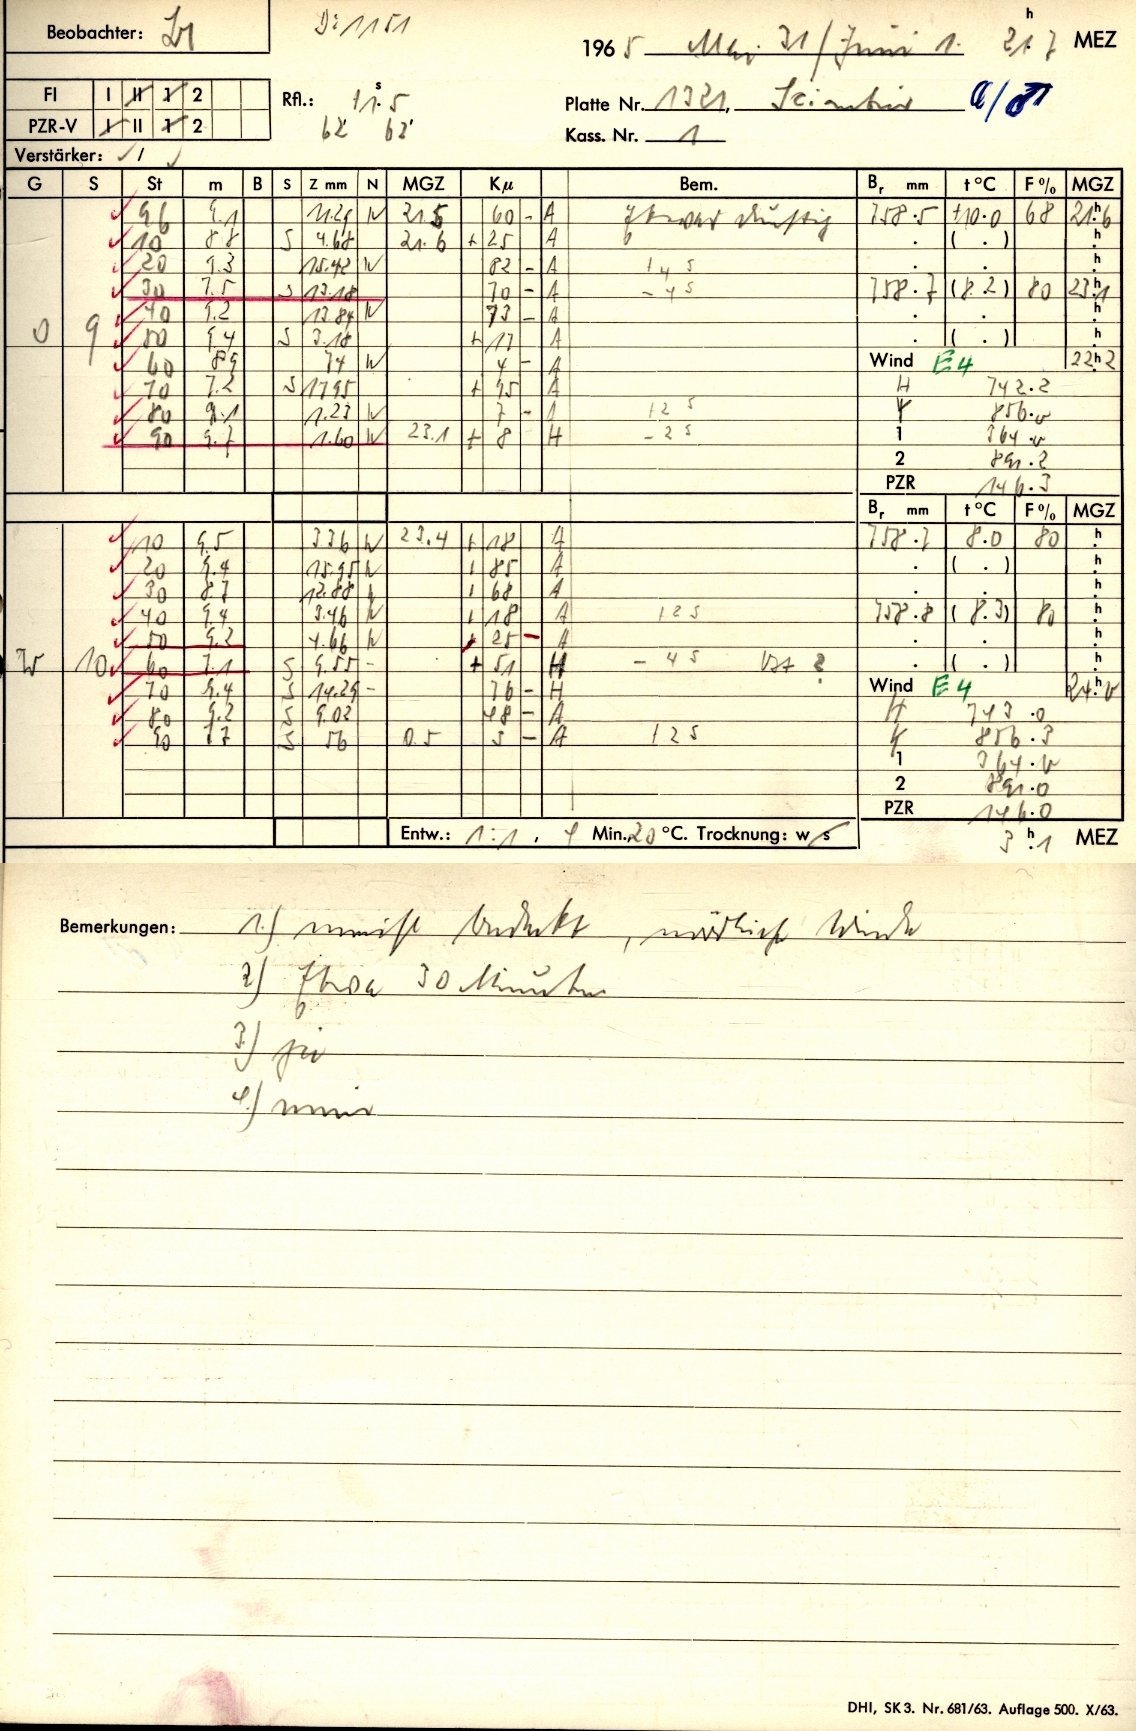 Beobachter:
196 5 Mai 31/Juni 1. 21 h 7 MEZ
FI I II 1 2
Rfl.: +1 s 5
Platte Nr. 1321,
PZR-V I II 1 2
62 62
Kass. Nr. 1
Verstärker: /
G S St m B S Z mm N MGZ Kμ Bem. Br mm t °C F % MGZ
96 9.1 11.29 N 21.5 60 - A Etwas dunstig 758.5 +10.0 68 21 h 6
10 8.8 S 4.68 21.6 + 25 A . ( . ) h
20 9.3 15.42 N 82 - A 14 s . . h
30 7.5 S 13.18 70 - A - 4 s 758.7 (8.2) 80 23 h 1
40 9.2 13.84 N 73 - A . . h
O 9 50 9.4 S 3.18 + 17 A . ( . ) h
60 89 74 N 4 - A Wind E4 22 h 2
70 7.2 S 1795 + 95 A H 742.2
80 9.1 1.23 N 7 - A 12 s
90 9.7 1.60 N 23.1 + 8 H - 2 s 1
2 891.2
PZR 146.3
Br mm t °C F % MGZ
10 9.5 336 N 23.4 + 18 A 758.7 8.0 80 h
20 9.4 15.95 N + 85 A . ( . ) h
30 8.7 12.88 N + 68 A . . h
40 9.4 3.46 N + 18 A 12 s 758.8 (8.3) 80 h
50 9.2 4.66 N 25 - A . . h
W 10 60 7.1 S 9.55 - + 51 H - 4 s ? . ( . ) h
70 9.4 S 14.29 - 76 - H Wind E4
80 9.2 S 9.02 48 - A H 743.0
90 7.7 S 56 0.5 3 - A 12 s 856.3
1
2 891.0
PZR 146.0
Entw.: 1:1, 4 Min. 20 °C. Trocknung: w/s 3 h 1 MEZ
Bemerkungen: 1.) meist bedeckt, nördliche Winde
2) Etwa 30 Minuten
3.) ja
4.) nein
DHI, SK 3. Nr. 681/63. Auflage 500. X/63.